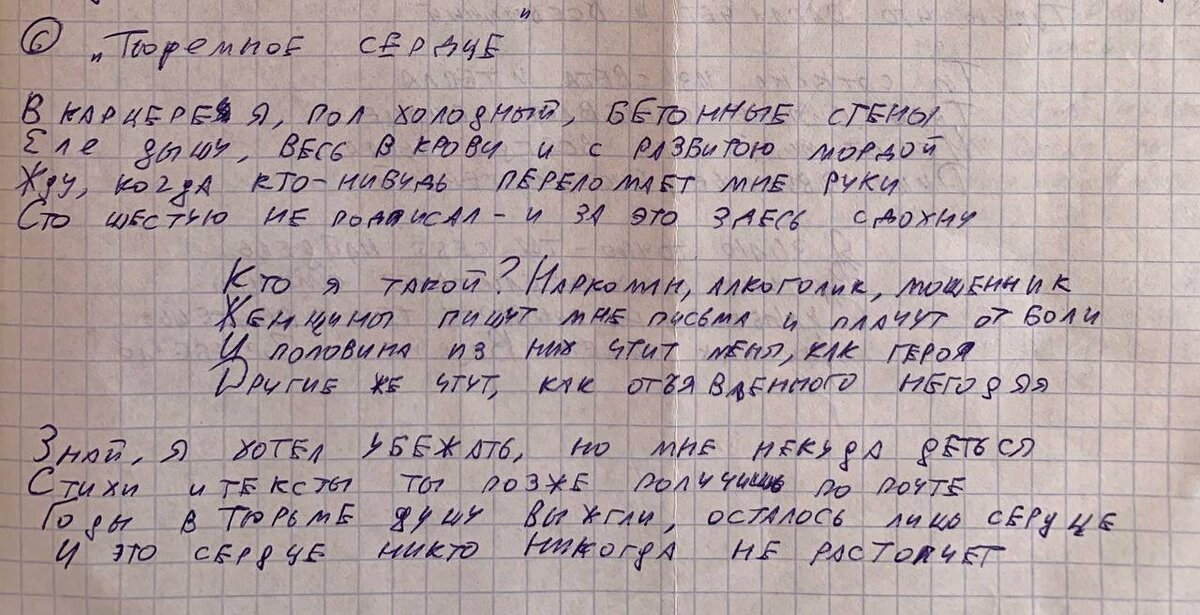 6 "Тюремное сердце"
В карцере я, пол холодный, бетонные стены
Еле дышу, весь в крови и с разбитою мордой
Жду, когда кто-нибудь переломает мне руки
Сто шестую не подписал - и за это здесь сдохну
Кто я такой? Наркоман, алкоголик, мошенник
Женщины пишут мне письма и плачут от боли
И половина из них чтит меня, как героя
Другие же чтут, как отъявленного негодяя
Знай, я хотел убежать, но мне некуда деться
Стихи и тексты ты позже получишь по почте
Годы в тюрьме душу выжгли, осталось лишь сердце
И это сердце никто никогда не растопчет